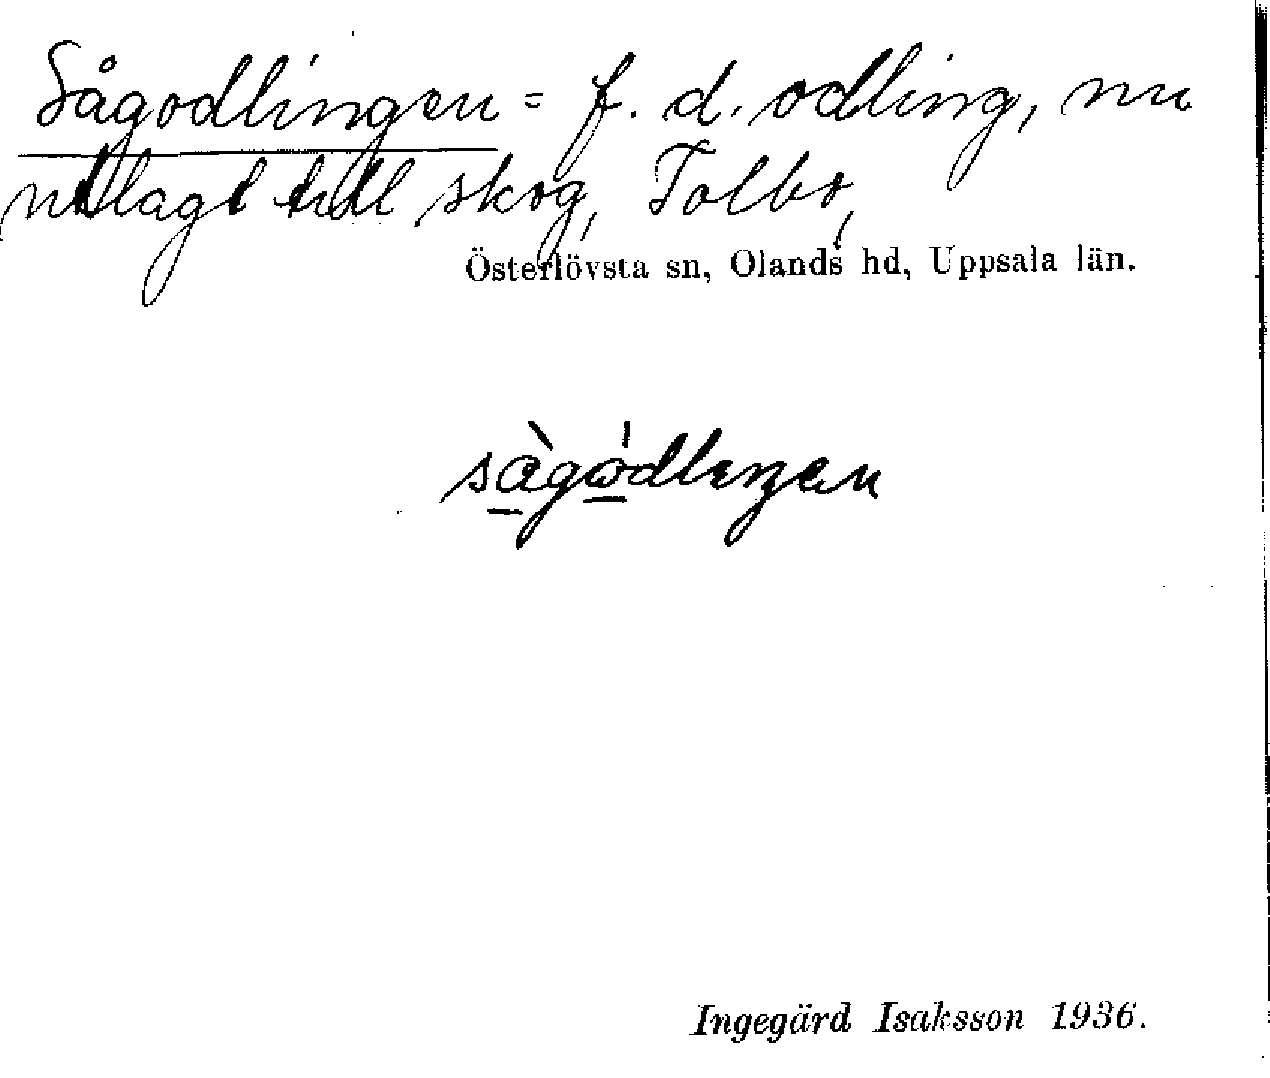 Sågodlingen = f. d. odling, nu
utlagt till skog, Tolbo,
Österlövsta sn, Olands hd, Uppsala län.
sὰgόdlıŋen
Ingegärd Isaksson 1936.